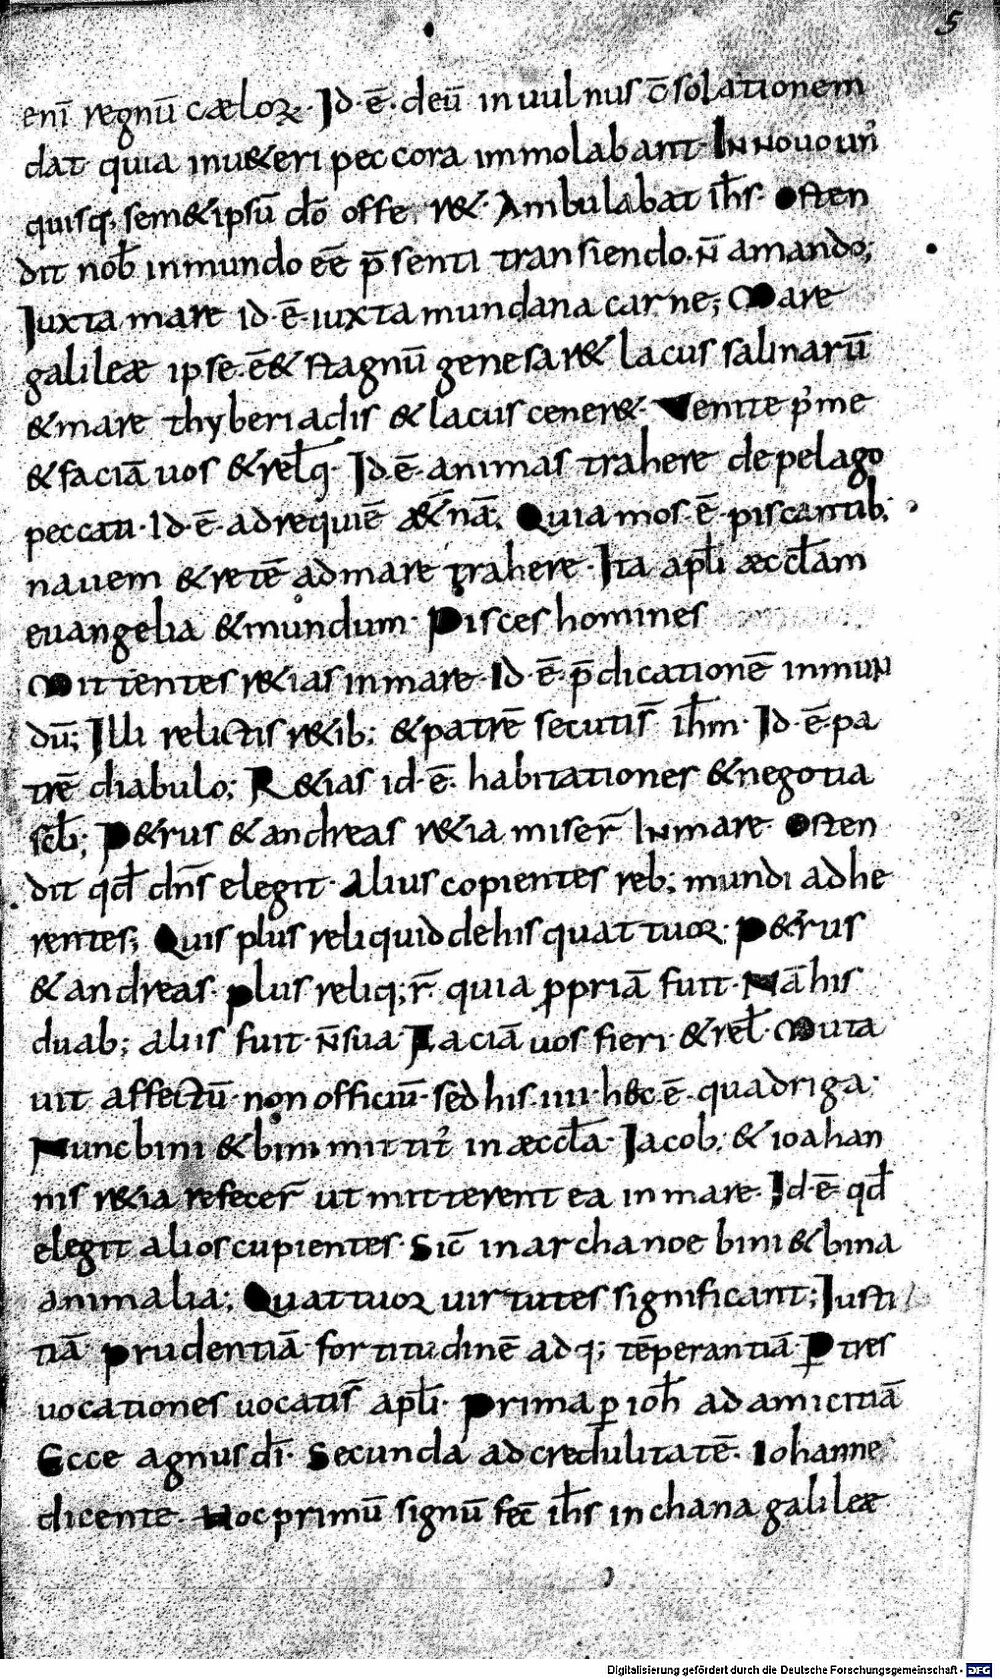 5
enī regnū cælorꝝ· Id·ē· deū inuulnus c̄solationem
dat quia inu&eri peccora immolabant· In nouo un̉
quisq; sem&ipsū dō offer&· Ambulabat ih̄s· Osten
dit nob̄ inmundo eē p̄senti transiendo· n̄ amando;
Iuxta mare id·ē· iuxta mundana carne; Mare
galileæ ipse·ē& stagnū genesar& lacus salinarū
&mare thyberiadis & lacus cener&· Venite p̉me
& faciā uos & relq̄· Id·ē· animas trahere de pelago
peccati· Id·ē· adrequiē æ&̄nā; Quia mos·ē· piscantib;
nauem & retē ad mare trahere· Ita apl̄i æccl̄am
euangelia & mundum· Pisces homines
Mittentes r&ias in mare· Id·ē· p̄dicationē inmun
dū; Illi relictis r&ib; & patrē secutis̄ ih̄m· Id·ē· pa
trē diabulo; R&ias id·ē· habitationes & negotia
scl̄i; P&rus & andreas r&ia miser̄ In mare· Osten
dit qd̄ dn̄s elegit· Alius copientes reb; mundi adhe
rentes; Quis plus reliquid de his quattuorꝝ· P&rus
& andreas· plus reliq;r̄· quia ꝓpriā fuit· Nā his
duab; aliis fuit· n̄ sua· Faciā uos fieri· & rel̄· Muta
uit affectū· non officiū· sed his· iiii· hæc·ē· quadriga·
Nunc bini & bini mittit̉ in æccl̄a· Iacob; & ioahan
nis r&ia refecer̄ ut mitterent ea in mare· Id·ē· qd̄
elegit alios cupientes· Sic̄ in archa noe bini & bina
animalia; Quattuor uirtutes significant; Iusti
tiā prudentiā fortitudinē adq; tēperantiā· Ꝑ tres
uocationes uocatis̄ apl̄i· Prima ꝑ ioh̄ ad amicitiā
Ecce agnus dī· Secunda ad credulitatē· Iohanne
dicente· Hoc primū signū fec̄ ih̄s in chana galileæ
Digitalisierung gefördert durch die Deutsche Forschungsgemeinschaft - DFG